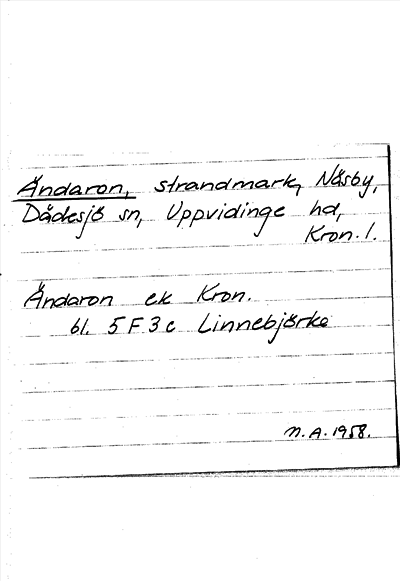 Ändaron, strandmark, Näsby,
Dädesjö sn, Uppvidinge hd,
Kron. l.
Ändaron ek Kron.
bl. 5 F 3 c Linnebjörke
N.A. 1958.